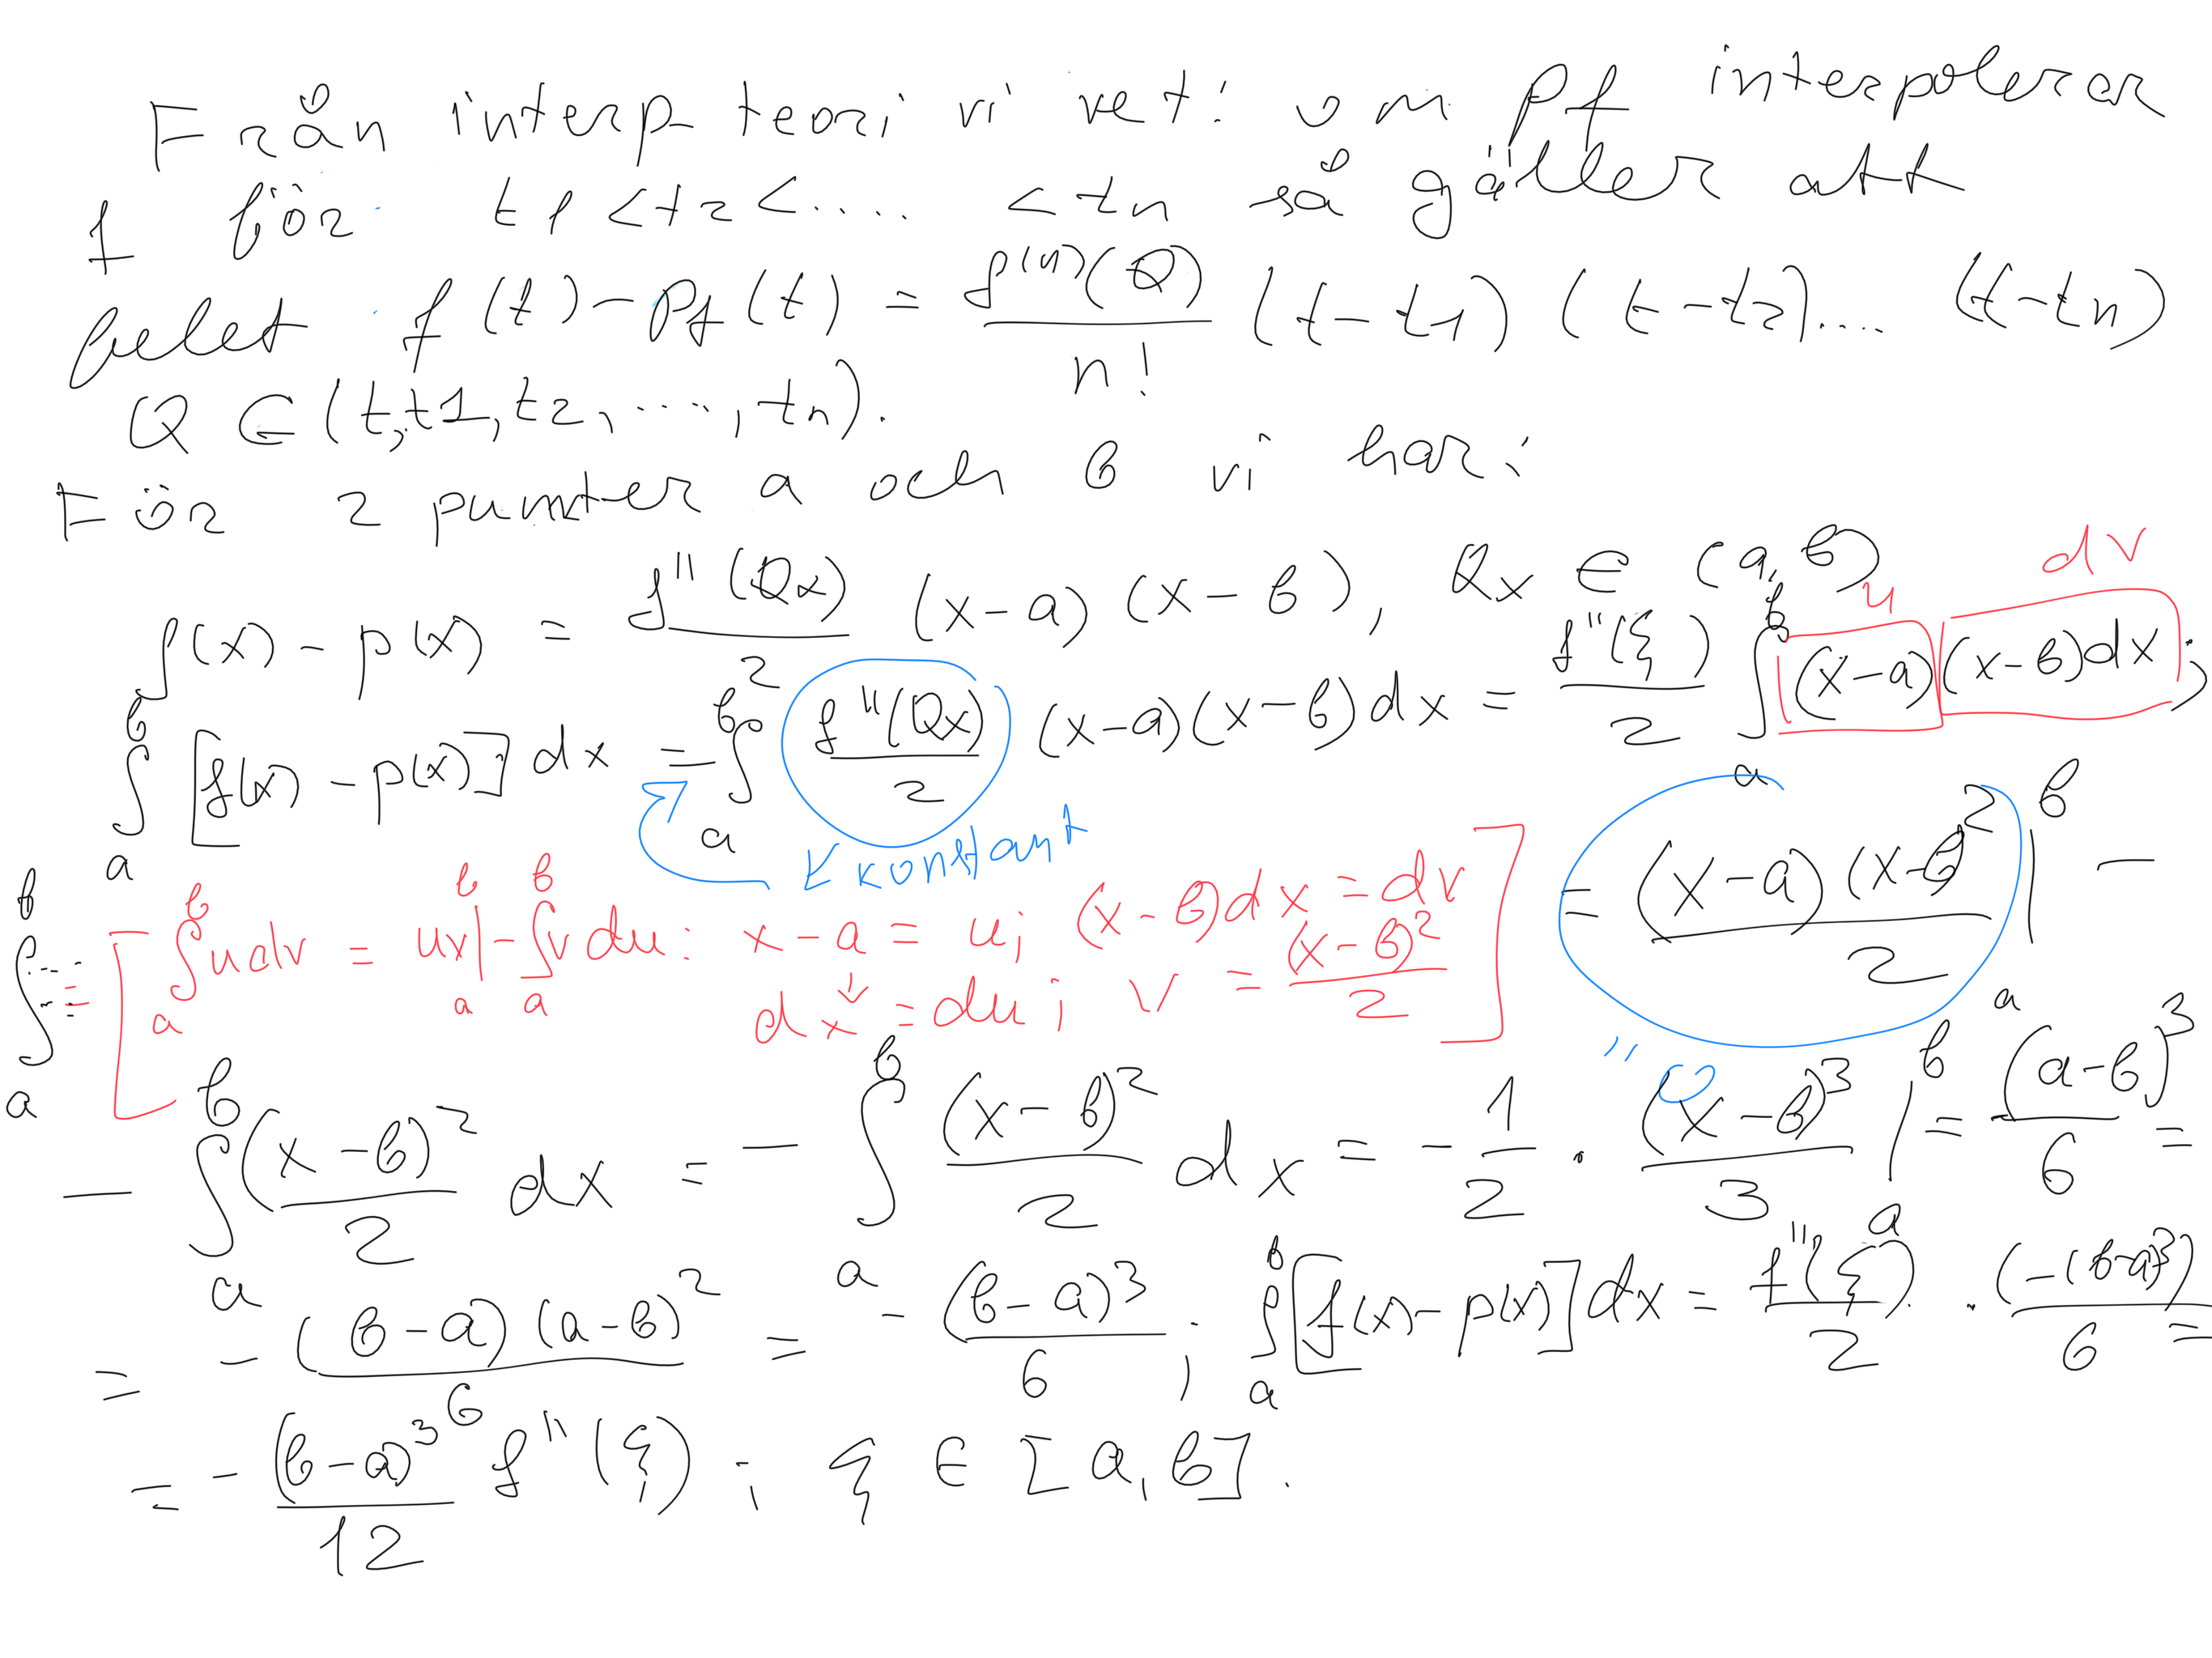 Från interp teori vi vet: om Pf interpolerar
f för t1 < t2 < ..... < tn så gäller att
felet f(t) - Pf(t) = f^(n)(Q) / n! (t-t1) (t-t2) .... (t-tn)
Q ∈ (t, t1, t2, ...., tn).
För 2 punkter a och b vi har:
f(x) - p(x) = f''(Qx) / 2 (x-a)(x-b), Qx ∈ (a,b)
u dv
∫_a^b [f(x) - p(x)] dx = ∫_a^b f''(Qx) / 2 (x-a)(x-b)dx = f''(ξ) / 2 ∫_a^b (x-a)(x-b)dx;
konstant
∫_a^b .... = [∫_a^b u dv = uv |_a^b - ∫_a^b v du: x-a = u; (x-b)dx = dv
dx = du; v = (x-b)^2 / 2] = (x-a)(x-b)^2 / 2 |_a^b -
" 0
- ∫_a^b (x-b)^2 / 2 dx = - ∫_a^b (x-b)^2 / 2 dx = - 1/2 · (x-b)^3 / 3 |_a^b = (a-b)^3 / 6 =
= - (b-a)(a-b)^2 / 6 = - (b-a)^3 / 6 ; ∫_a^b [f(x) - p(x)]dx = f''(ξ) / 2 · (-(b-a)^3) / 6 =
= - (b-a)^3 / 12 f''(ξ) ; ξ ∈ [a,b].